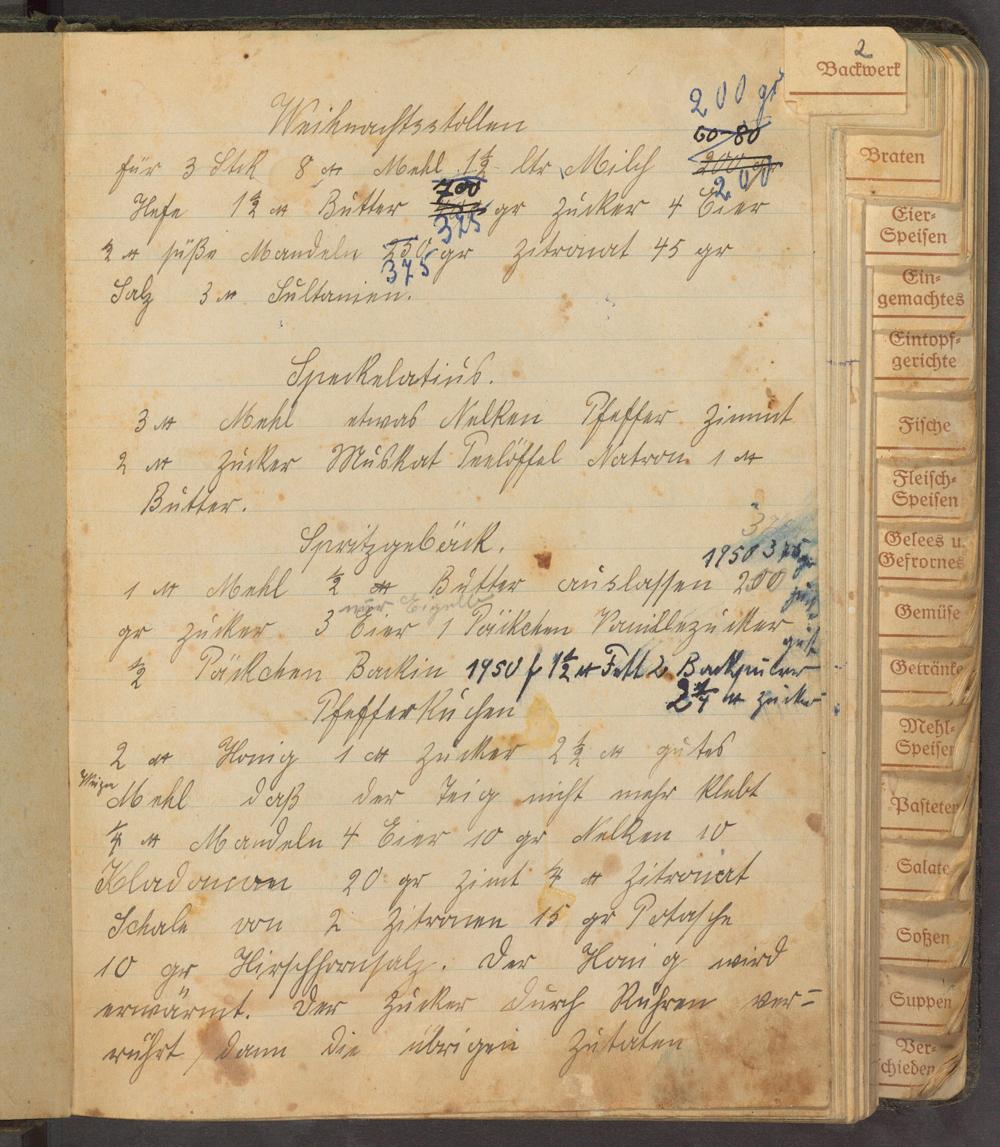 2
Backwerk
Weihnachtsstollen
200 gr
60-80
für 3 Stck 8 ℔ Mehl 1½ ltr Milch 200 gr
700
200
Hefe 1½ ℔ Butter gr Zucker 4 Eier
375
½ ℔ süße Mandeln 250 gr Zitronat 45 gr
375
Salz 3 ℔ Sultanien.
Speckelatius.
3 ℔ Mehl etwas Nelken Pfeffer Zimmt
2 ℔ Zucker Muskat Teelöffel Natron 1 ℔
Butter.
Spritzgebäck.
1950 375 gr
1 ℔ Mehl ½ ℔ Butter auslassen 200
nur Eigelb
gr Zucker 3 Eier 1 Päckchen Vanillezucker
gut
½ Päckchen Backin 1950 f 1½ ℔ Fett 2 Backpulver
2¼ ℔ Zucker
Pfefferkuchen
2 ℔ Honig 1 ℔ Zucker 2½ ℔ gutes
Weizen
Mehl daß der Teig nicht mehr klebt
¼ ℔ Mandeln 4 Eier 10 gr Nelken 10
Kladomom 20 gr Zimt ¼ ℔ Zitronat
Schale von 2 Zitronen 15 gr Potasche
10 gr Hirschhornsalz. Der Honig wird
erwärmt. Der Zucker durch Rühren ver=
rührt, dann die übrigen Zutaten
Braten
Eier-
Speisen
Ein-
gemachtes
Eintopf-
gerichte
Fische
Fleisch-
Speisen
Gelees u.
Gefrornes
Gemüse
Getränke
Mehl-
Speisen
Pasteten
Salate
Soßen
Suppen
Ver-
schieden